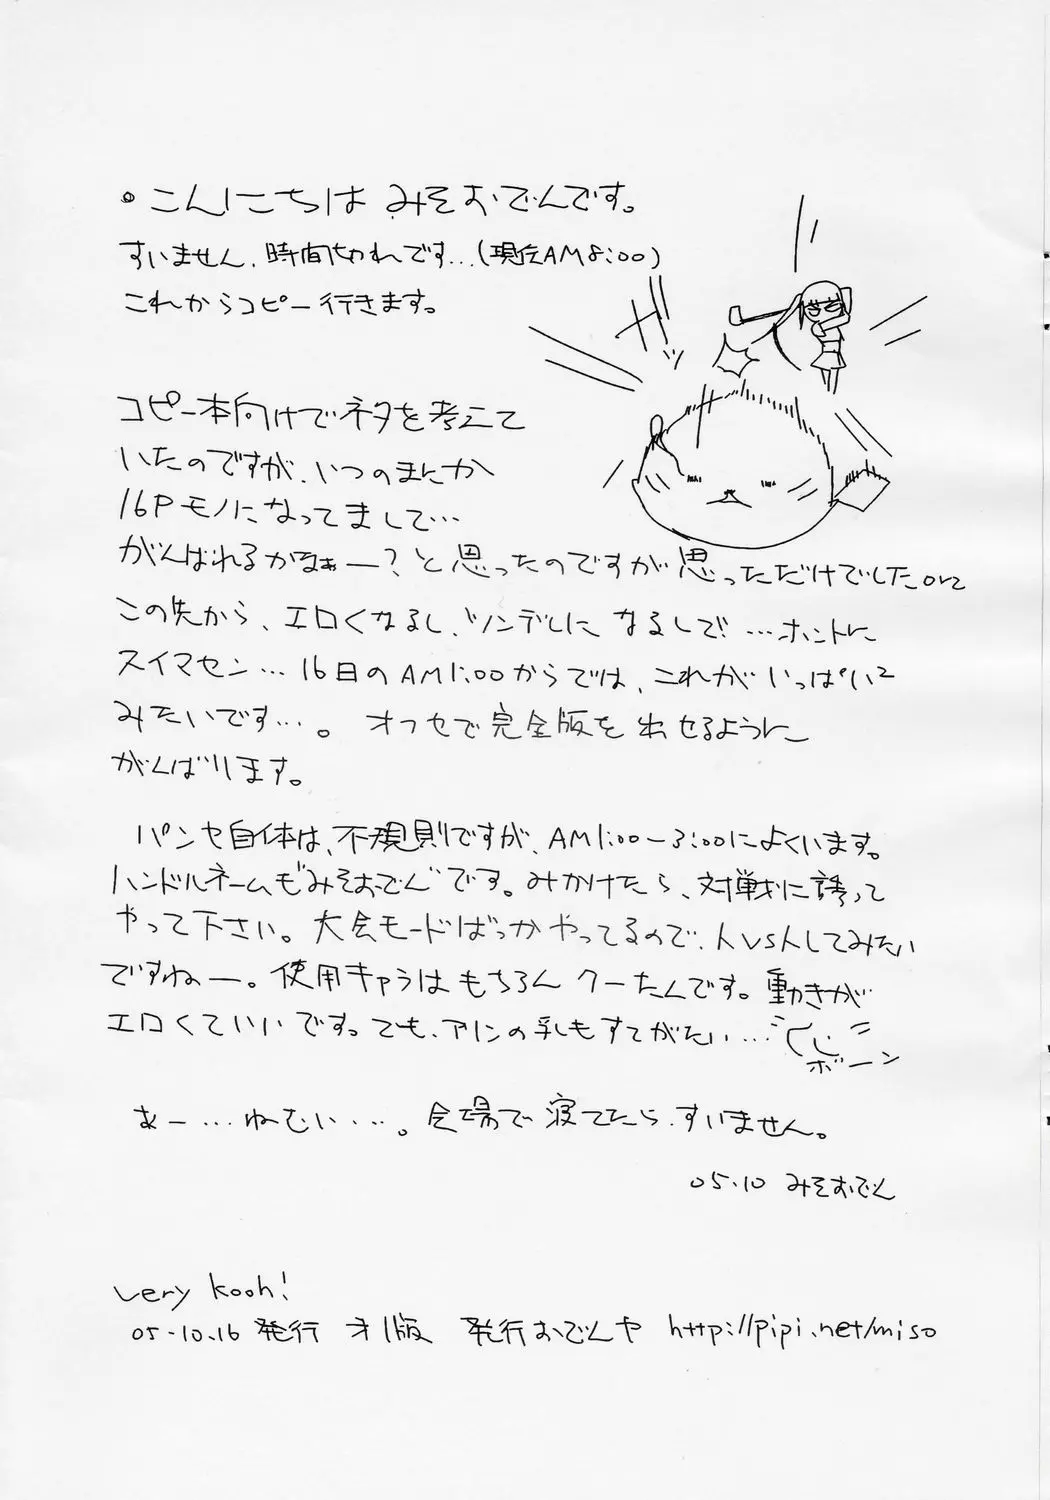 ・こんにちは みそおでんです。
すいません、時間切れです…(現在AM8:00)
これからコピー行きます。
コピー本向けでネタを考えて
いたのですが、いつのまにか
16Pモノになってまして…
がんばれるかなぁー?と思ったのですが思っただけでしたorz
この先から、エロくなるし、ツンデレになるしで!…ホントに
スイマセン…16日のAM1:00からでは、これがいっぱい²
みたいです…。 オフセで完全版を出せるように
がんばります。
パンヤ自体は、不規則ですが、AM1:00ー3:00によくいます。
ハンドルネームも"みそおでん"です。みかけたら、対戦に誘って
やって下さい。大会モードばっかやってるので、人vs人してみたい
ですねー。使用キャラはもちろんクーたんです。動きが
エロくていいです。でも、アリンの乳もすてがたい…
ボーン
あー…ねむい…。会場で寝てたら、すいません。
05.10 みそおでん
very kooh!
05.10.16 発行 オリ版 発行おでんや http://pipi.net/miso